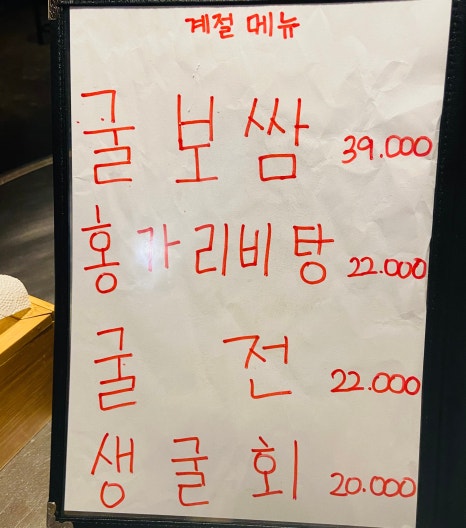 계절 메뉴
굴 보쌈 39.000
홍가리비탕 22.000
굴 전 22.000
생 굴 회 20.000